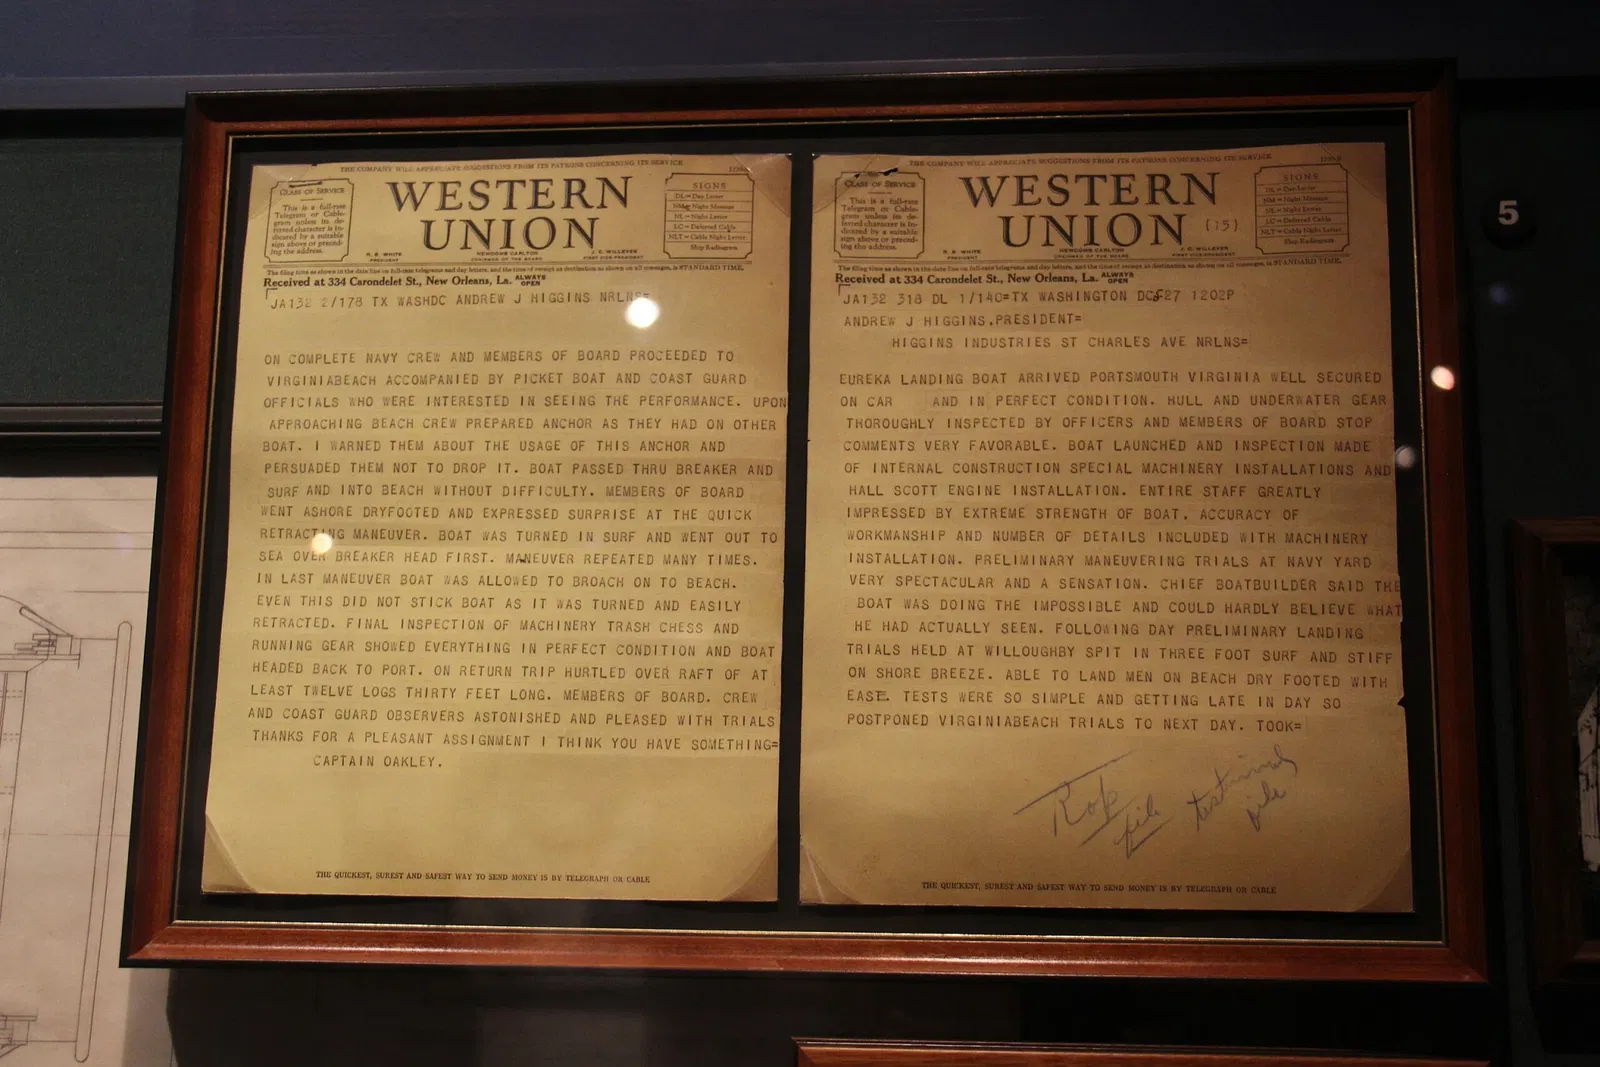 THE COMPANY WILL APPRECIATE SUGGESTIONS FROM ITS PATRONS CONCERNING ITS SERVICE
CLASS OF SERVICE
This is a full-rate
Telegram or Cable-
gram unless its de-
ferred character is in-
dicated by a suitable
sign above or preced-
ing the address.
WESTERN
UNION
SIGNS
DL = Day Letter
NM = Night Message
NL = Night Letter
LC = Deferred Cable
NLT = Cable Night Letter
Ship Radiogram
R. B. WHITE
PRESIDENT
NEWCOMB CARLTON
CHAIRMAN OF THE BOARD
J. C. WILLEVER
FIRST VICE-PRESIDENT
The filing time as shown in the date line on full-rate telegrams and day letters, and the time of receipt at destination as shown on all messages, is STANDARD TIME.
Received at 334 Carondelet St., New Orleans, La. ALWAYS OPEN
JA132 2/178 TX WASHDC ANDREW J HIGGINS NRLNS=
ON COMPLETE NAVY CREW AND MEMBERS OF BOARD PROCEEDED TO
VIRGINIABEACH ACCOMPANIED BY PICKET BOAT AND COAST GUARD
OFFICIALS WHO WERE INTERESTED IN SEEING THE PERFORMANCE. UPON
APPROACHING BEACH CREW PREPARED ANCHOR AS THEY HAD ON OTHER
BOAT. I WARNED THEM ABOUT THE USAGE OF THIS ANCHOR AND
PERSUADED THEM NOT TO DROP IT. BOAT PASSED THRU BREAKER AND
SURF AND INTO BEACH WITHOUT DIFFICULTY. MEMBERS OF BOARD
WENT ASHORE DRYFOOTED AND EXPRESSED SURPRISE AT THE QUICK
RETRACTING MANEUVER. BOAT WAS TURNED IN SURF AND WENT OUT TO
SEA OVER BREAKER HEAD FIRST. MANEUVER REPEATED MANY TIMES.
IN LAST MANEUVER BOAT WAS ALLOWED TO BROACH ON TO BEACH.
EVEN THIS DID NOT STICK BOAT AS IT WAS TURNED AND EASILY
RETRACTED. FINAL INSPECTION OF MACHINERY TRASH CHESS AND
RUNNING GEAR SHOWED EVERYTHING IN PERFECT CONDITION AND BOAT
HEADED BACK TO PORT. ON RETURN TRIP HURTLED OVER RAFT OF AT
LEAST TWELVE LOGS THIRTY FEET LONG. MEMBERS OF BOARD. CREW
AND COAST GUARD OBSERVERS ASTONISHED AND PLEASED WITH TRIALS
THANKS FOR A PLEASANT ASSIGNMENT I THINK YOU HAVE SOMETHING=
CAPTAIN OAKLEY.
THE QUICKEST, SUREST AND SAFEST WAY TO SEND MONEY IS BY TELEGRAPH OR CABLE
THE COMPANY WILL APPRECIATE SUGGESTIONS FROM ITS PATRONS CONCERNING ITS SERVICE
CLASS OF SERVICE
This is a full-rate
Telegram or Cable-
gram unless its de-
ferred character is in-
dicated by a suitable
sign above or preced-
ing the address.
WESTERN
UNION (15)
SIGNS
DL = Day Letter
NM = Night Message
NL = Night Letter
LC = Deferred Cable
NLT = Cable Night Letter
Ship Radiogram
R. B. WHITE
PRESIDENT
NEWCOMB CARLTON
CHAIRMAN OF THE BOARD
J. C. WILLEVER
FIRST VICE-PRESIDENT
The filing time as shown in the date line on full-rate telegrams and day letters, and the time of receipt at destination as shown on all messages, is STANDARD TIME.
Received at 334 Carondelet St., New Orleans, La. ALWAYS OPEN
JA132 318 DL 1/140=TX WASHINGTON DC 27 1202P
ANDREW J HIGGINS,PRESIDENT=
HIGGINS INDUSTRIES ST CHARLES AVE NRLNS=
EUREKA LANDING BOAT ARRIVED PORTSMOUTH VIRGINIA WELL SECURED
ON CAR AND IN PERFECT CONDITION. HULL AND UNDERWATER GEAR
THOROUGHLY INSPECTED BY OFFICERS AND MEMBERS OF BOARD STOP
COMMENTS VERY FAVORABLE. BOAT LAUNCHED AND INSPECTION MADE
OF INTERNAL CONSTRUCTION SPECIAL MACHINERY INSTALLATIONS AND
HALL SCOTT ENGINE INSTALLATION. ENTIRE STAFF GREATLY
IMPRESSED BY EXTREME STRENGTH OF BOAT. ACCURACY OF
WORKMANSHIP AND NUMBER OF DETAILS INCLUDED WITH MACHINERY
INSTALLATION. PRELIMINARY MANEUVERING TRIALS AT NAVY YARD
VERY SPECTACULAR AND A SENSATION. CHIEF BOATBUILDER SAID THE
BOAT WAS DOING THE IMPOSSIBLE AND COULD HARDLY BELIEVE WHAT
HE HAD ACTUALLY SEEN. FOLLOWING DAY PRELIMINARY LANDING
TRIALS HELD AT WILLOUGHBY SPIT IN THREE FOOT SURF AND STIFF
ON SHORE BREEZE. ABLE TO LAND MEN ON BEACH DRY FOOTED WITH
EASE. TESTS WERE SO SIMPLE AND GETTING LATE IN DAY SO
POSTPONED VIRGINIABEACH TRIALS TO NEXT DAY. TOOK=
file
file
THE QUICKEST, SUREST AND SAFEST WAY TO SEND MONEY IS BY TELEGRAPH OR CABLE
5